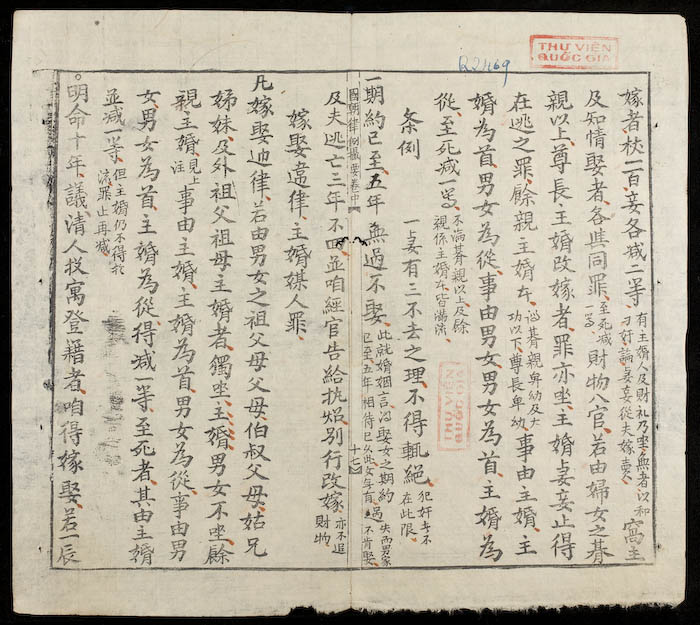 嫁者杖一百妾各减二等有主婚人及財礼乃坐無者以和刁奸論妻妾從夫嫁賣窩主
及知情娶者各與同罪至死减一等財物入官若由婦女之朞
親以上尊長主婚改嫁者罪亦坐主婚妻妾止得
在逃之罪餘親主婚者謂朞親卑幼及大功以下尊長卑幼事由主婚主
婚為首男女為從事由男女男女為首主婚為
從至死减一等不論朞親以上及餘親係主婚者皆滿流
条例 一妻有三不去之理不得輒絕犯奸者不在此限
一期約已至五年無過不娶此就婚姻言謂娶女之期約已至五年相待已久女年有過失而男家不肯娶
國朝律例撮要卷中 十七
及夫逃亡三年不回並咱經官告給执炤別行改嫁亦不追財物
嫁娶違律主婚媒人罪
凡嫁娶違律若由男女之祖父母父母伯叔父母姑兄
姊妹及外祖父祖母主婚者獨坐主婚男女不坐餘
親主婚見上注事由主婚主婚為首男女為從事由男
女男女為首主婚為從得减一等至死者其由主婚
並减一等但主婚仍不得於流罪止再减
。明命十年議清人投寓登籍者咱得嫁娶若一辰
THƯ VIỆN
QUỐC GIA
THƯ VIỆN
QUỐC GIA